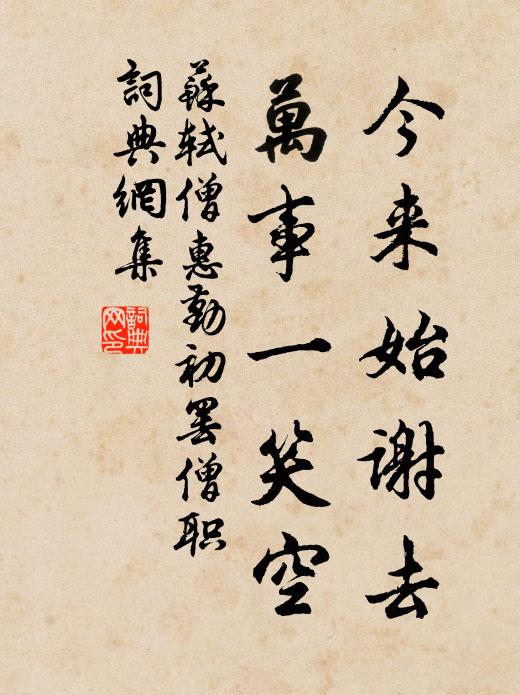 今来始谢去
萬事一笑空
蘇軾僧惠勤初罢僧职
詞典網集
詞典网印